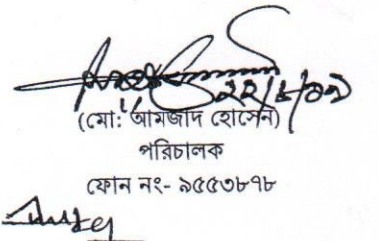 ২২/৮/০৯
(মো: আমজাদ হোসেন)
পরিচালক
ফোন নং- ৯৫৫৩৮৭৮